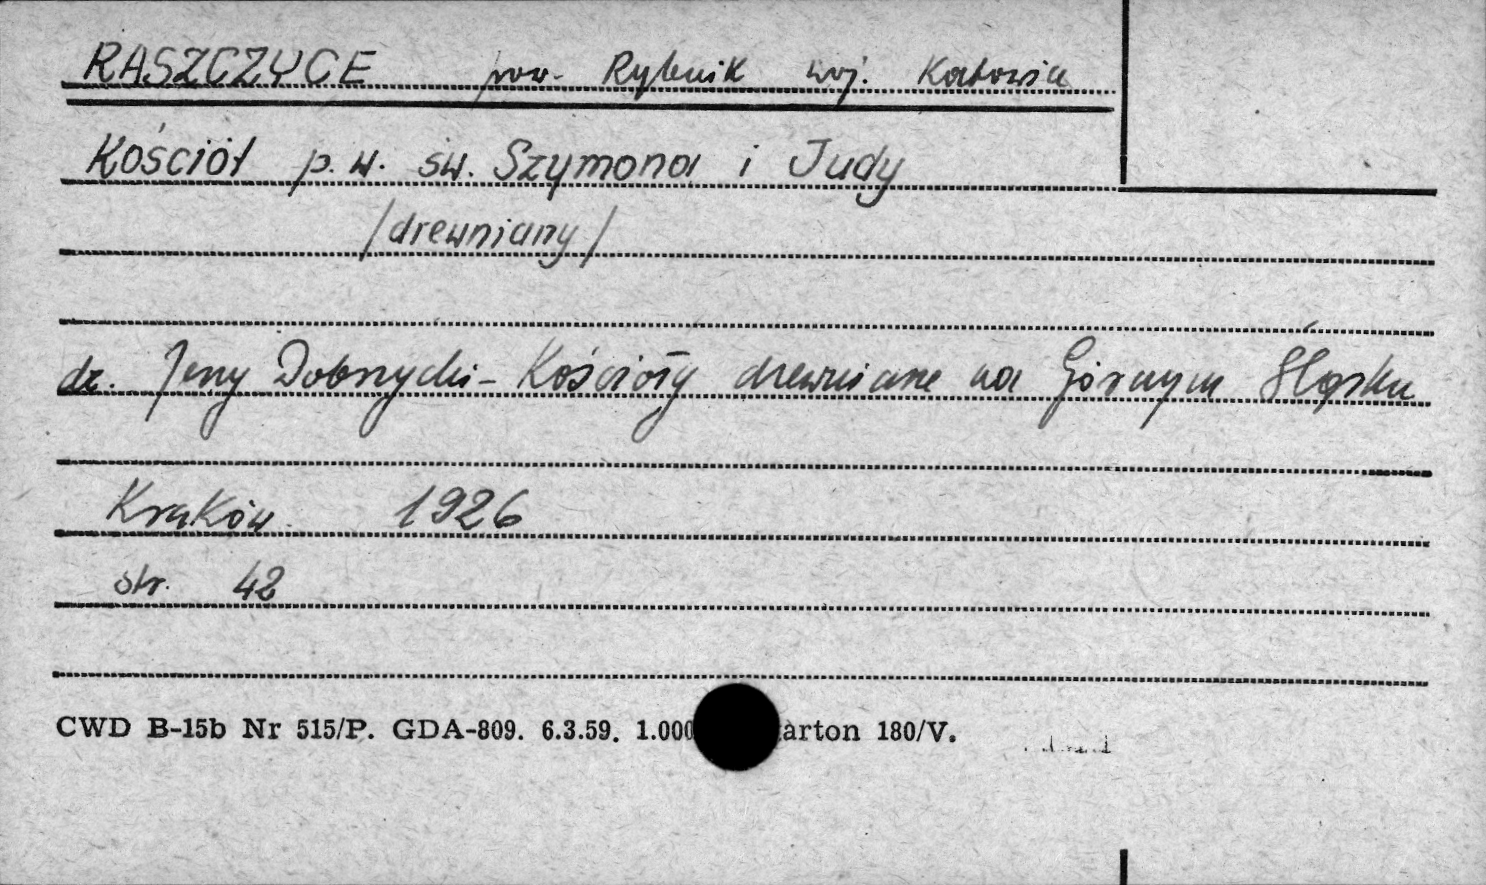 RASZCZYCE pow. Rybnik woj. Katowice
Kościół p.w. św. Szymona i Judy
/drewniany/
dr. Jerzy Dobrzycki - Kościoły drewniane na Górnym Śląsku
Kraków 1926
str. 42
CWD B-15b Nr 515/P. GDA-809. 6.3.59. 1.000 arton 180/V.